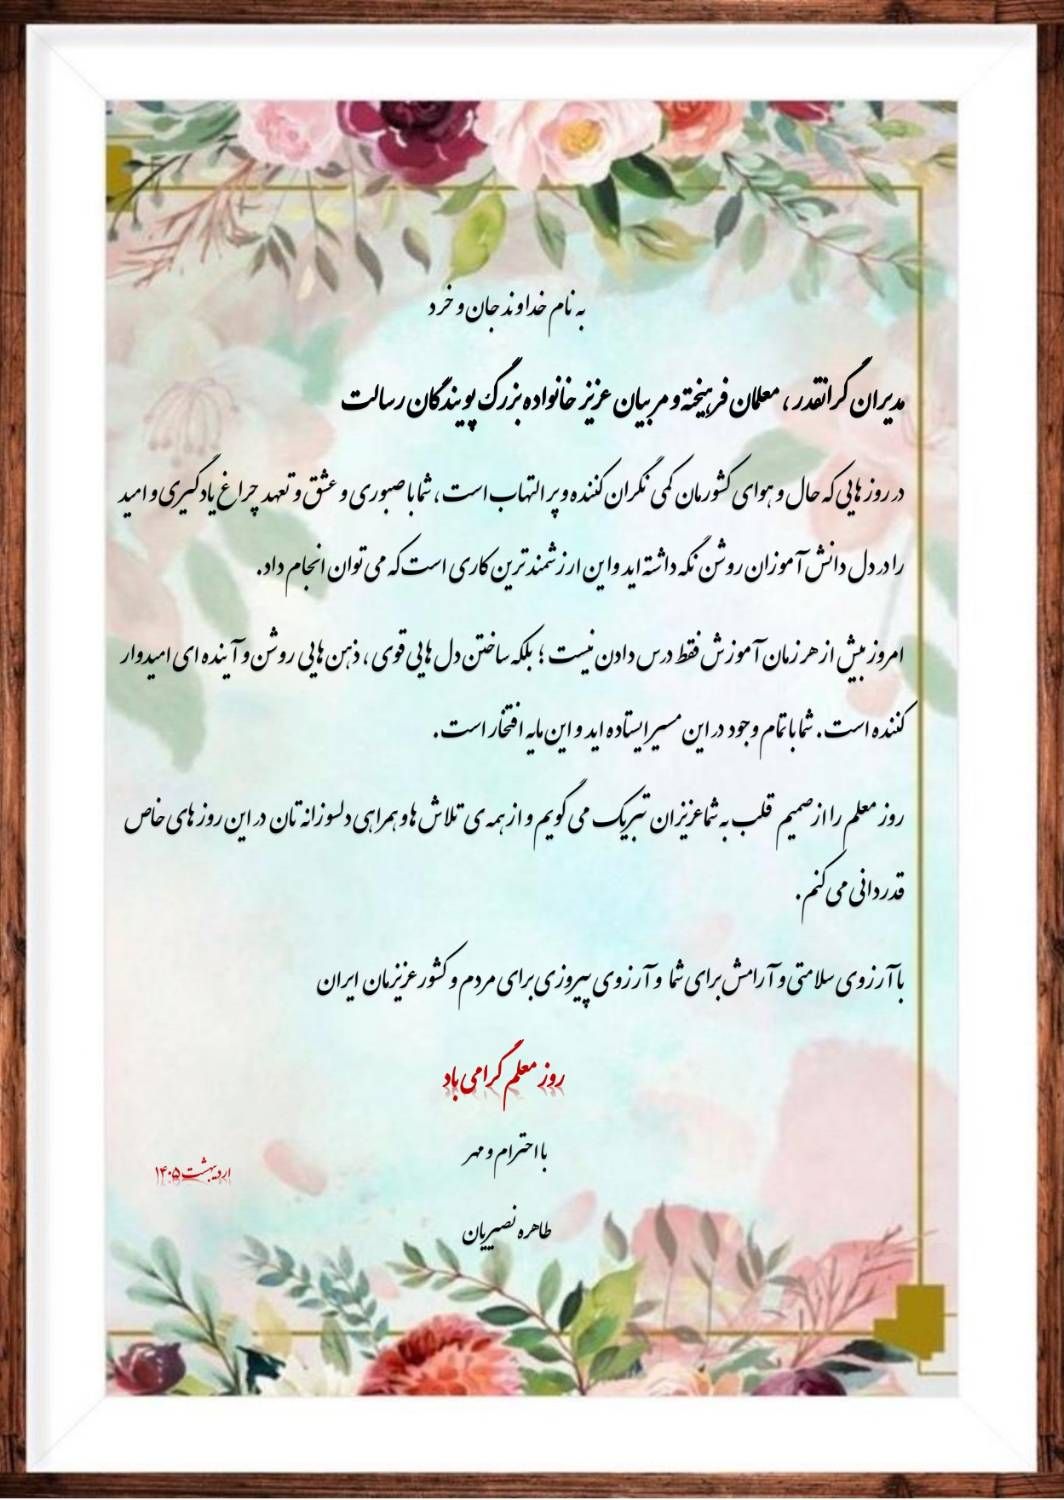 به نام خداوند جان و خرد
مدیران گرانقدر ، معلمان فرهیخته و مربیان عزیز خانواده بزرگ پویندگان رسالت
در روز هایی که حال و هوای کشورمان کمی نگران کننده و پر التهاب است ، شما با صبوری و عشق و تعهد چراغ یادگیری و امید
را در دل دانش آموزان روشن نگه داشته اید و این ارزشمند ترین کاری است که می توان انجام داد .
امروز بیش از هر زمان آموزش فقط درس دادن نیست ؛ بلکه ساختن دل هایی قوی ، ذهن هایی روشن و آینده ای امیدوار
کننده است . شما با تمام وجود در این مسیر ایستاده اید و این مایه افتخار است .
روز معلم را از صمیم قلب به شما عزیزان تبریک می گویم و از همه ی تلاش ها و همراهی دلسوزانه تان در این روز های خاص
قدردانی می کنم .
با آرزوی سلامتی و آرامش برای شما و آرزوی پیروزی برای مردم و کشور عزیزمان ایران
روز معلم گرامی باد
با احترام و مهر
اردیبهشت ۱۴۰۵
طاهره نصیریان